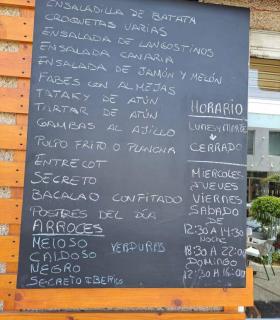 ENSALADILLA DE BATATA
CROQUETAS VARIAS
ENSALADA DE LANGOSTINOS
ENSALADA CANARIA
ENSALADA DE JAMÓN Y MELÓN
FABES CON ALMEJAS
TATAKY DE ATÚN
TARTAR DE ATÚN
GAMBAS AL AJILLO
PULPO FRITO O PLANCHA
ENTRECOT
SECRETO
BACALAO CONFITADO
POSTRES DEL DÍA
ARROCES
MELOSO VERDURAS
CALDOSO
NEGRO
SECRETO IBERICO
HORARIO
LUNES Y MARTES
CERRADO
MIERCOLES
JUEVES
VIERNES
SABADO
DE
12:30 A
NOCHE
18:30 A 22:00
DOMINGO
12:30 A 16:00